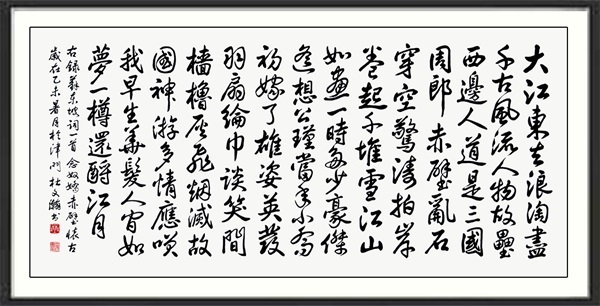 大江東去浪淘盡
千古風流人物故壘
西邊人道是三國
周郎赤壁亂石
穿空驚濤拍岸
卷起千堆雪江山
如畫一時多少豪傑
遙想公瑾當年小喬
初嫁了雄姿英發
羽扇綸巾談笑間
檣櫓灰飛煙滅故
國神游多情應笑
我早生華髮人間如
夢一樽還酹江月
右錄蘇東坡詞一首 念奴嬌赤壁懷古
歲在乙未暑月於津門 杜文瀚書